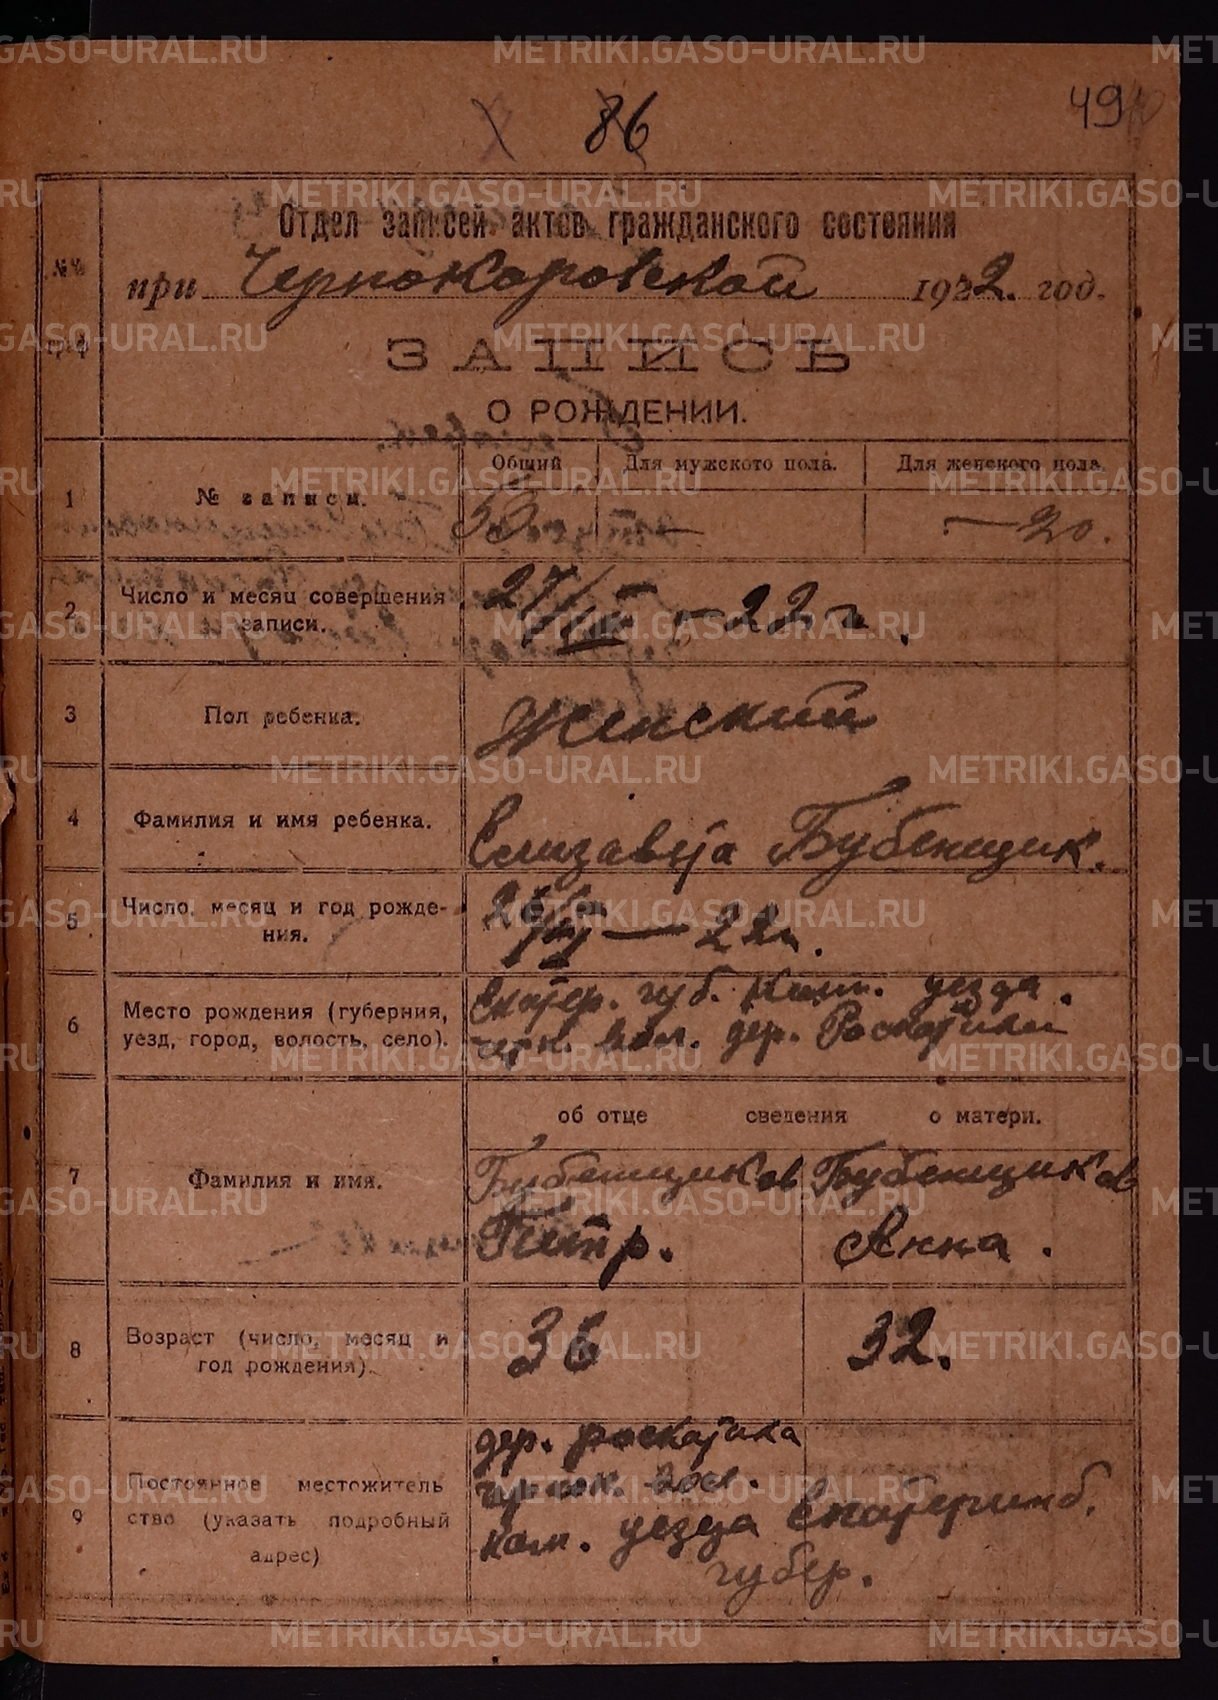 86
49
Отдел записей актов гражданского состояния
№№ граф
при Чернокоровской 1922. год.
ЗАПИСЬ
О РОЖДЕНИИ.
Общий Для мужского пола. Для женского пола.
1 № записи. — —20.
2 Число и месяц совершения записи. 27/VIII —22 г.
3 Пол ребенка. Женский
4 Фамилия и имя ребенка. Елизавета Бубенщик.
5 Число, месяц и год рождения. —22 г.
6 Место рождения (губерния, уезд, город, волость, село). Екатер. губ. Кам. уезда.
черн. вол. дер. Роскатихи
об отце сведения о матери.
7 Фамилия и имя. Бубенщиков Бубенщиков
Петр. Анна.
8 Возраст (число, месяц и год рождения). 36 32.
9 Постоянное местожительство (указать подробный адрес) дер. роскатиха
чернок. вол.
кам. уезда Екатеринб.
губер.
METRIKI.GASO-URAL.RU